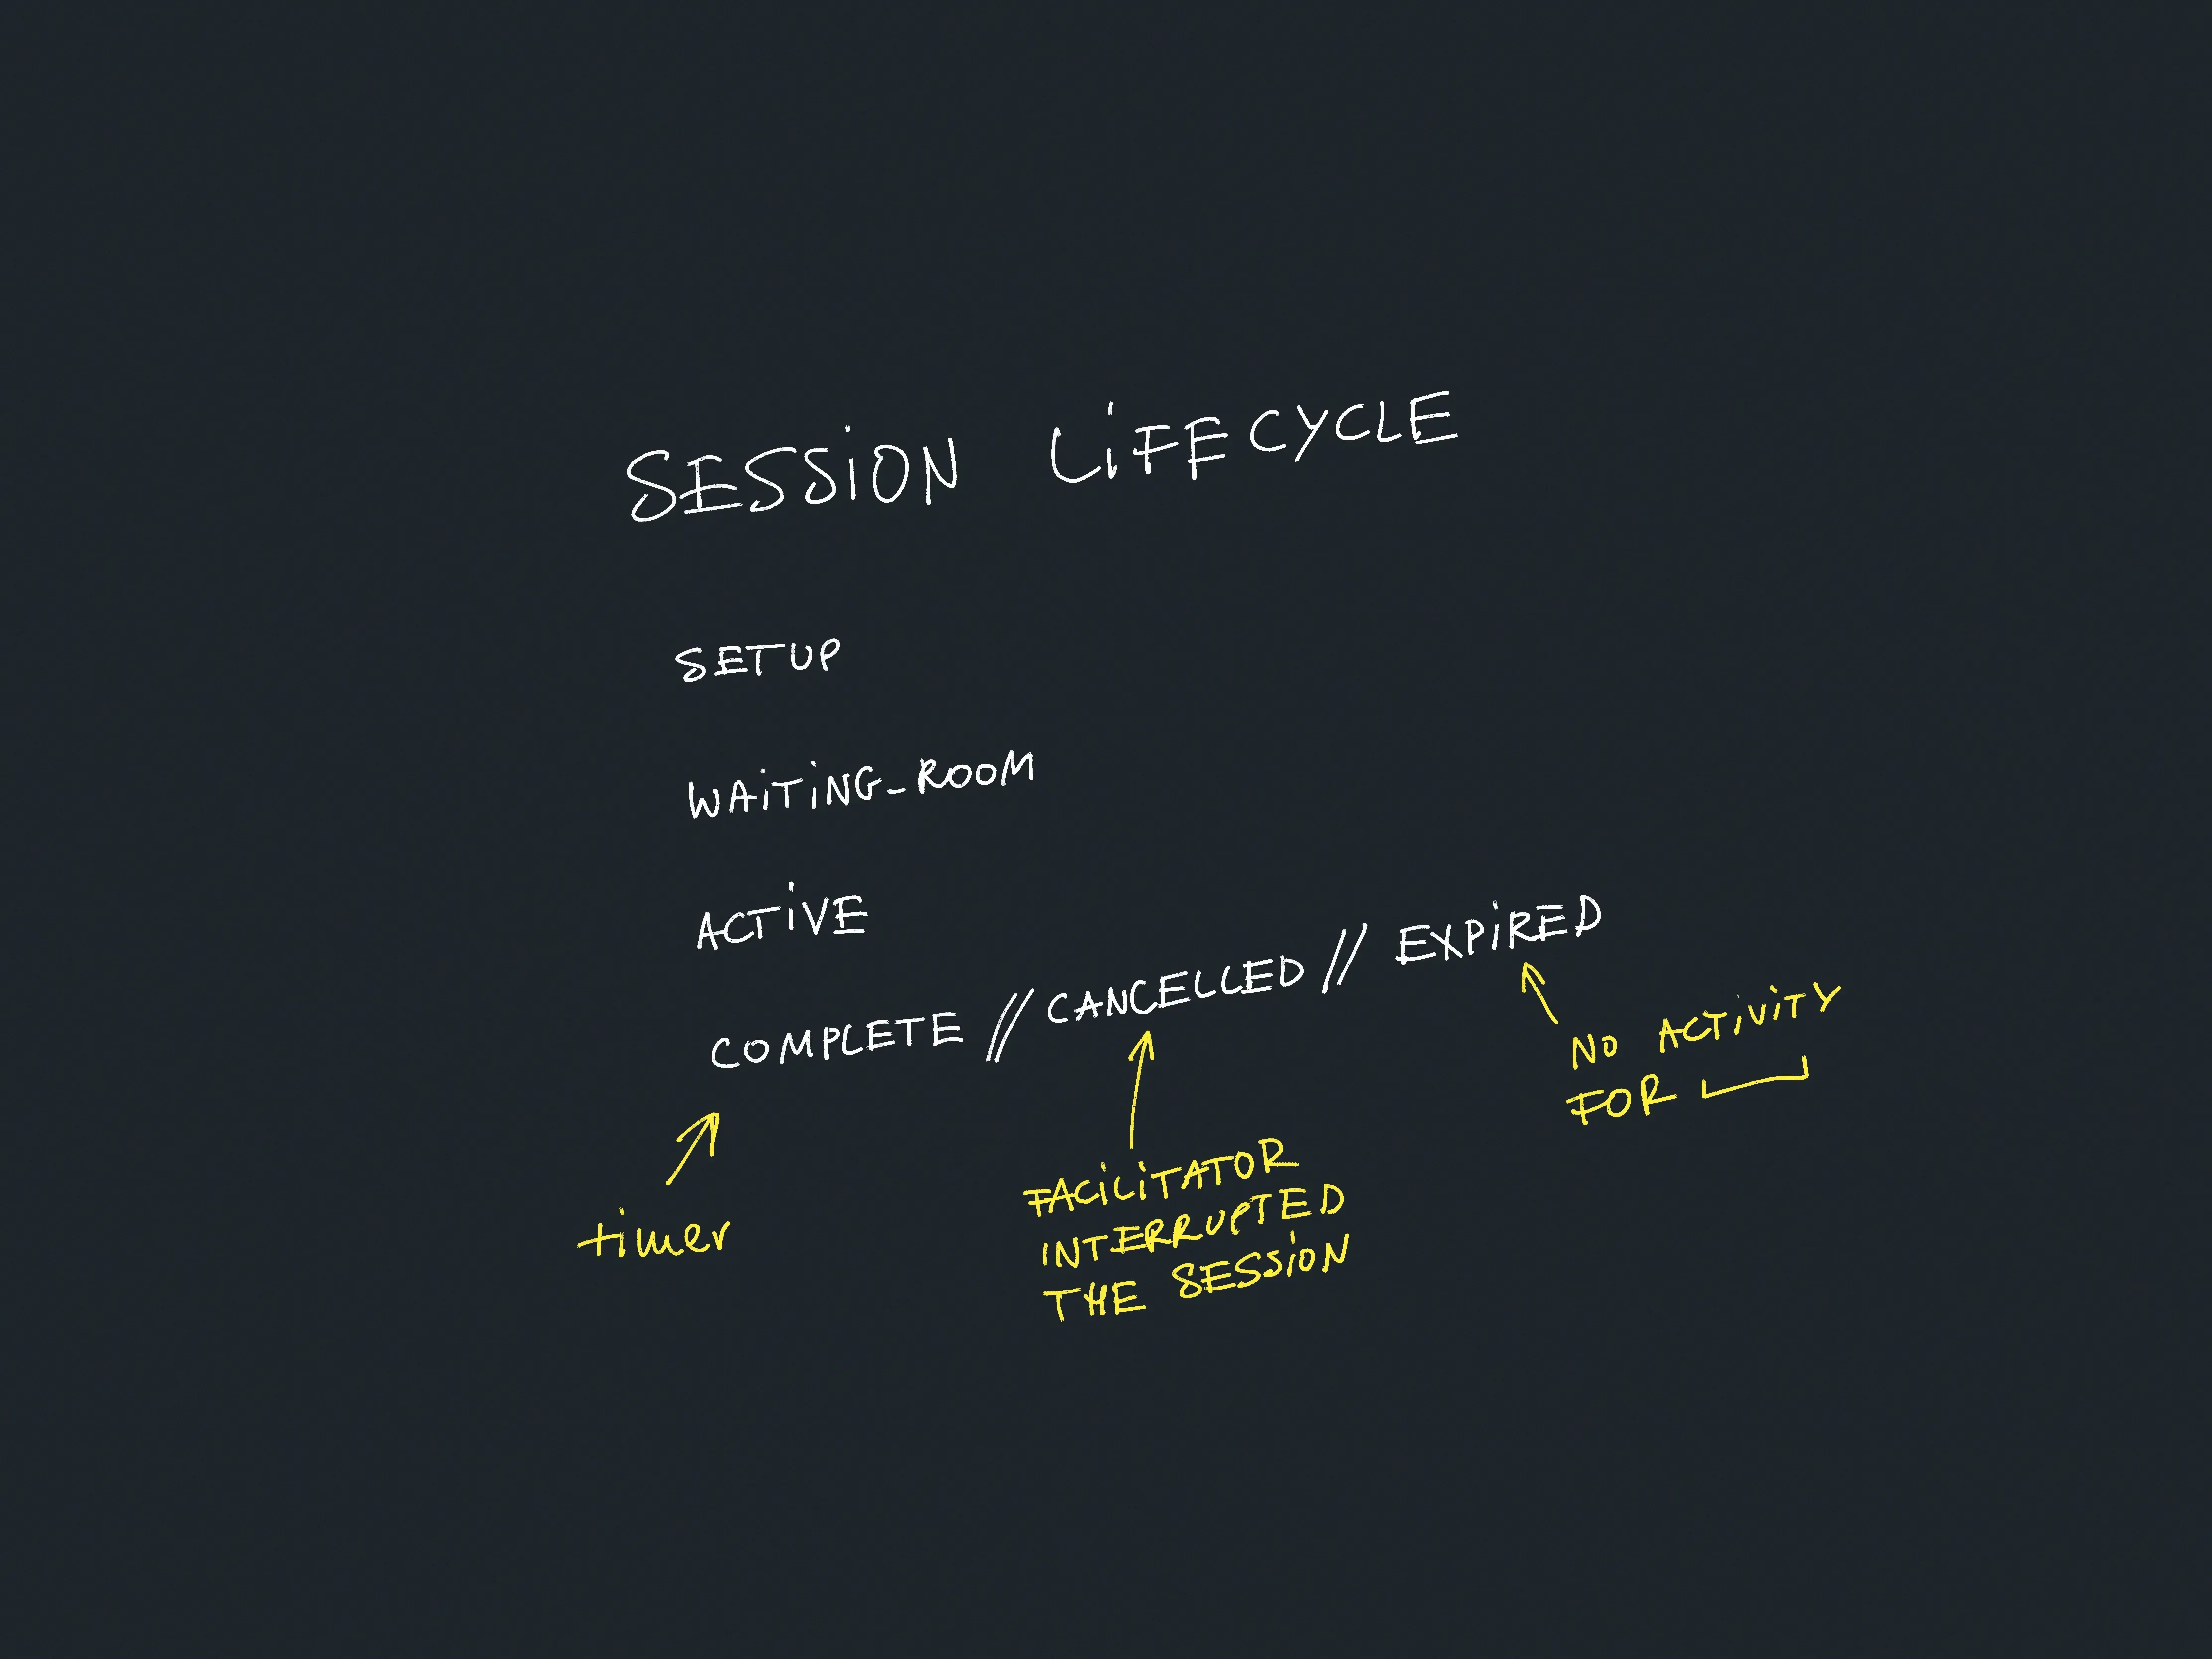 SESSION LIFECYCLE
SETUP
WAITING_ROOM
ACTIVE
COMPLETE // CANCELLED // EXPIRED
timer
FACILITATOR
INTERRUPTED
THE SESSION
NO ACTIVITY
FOR